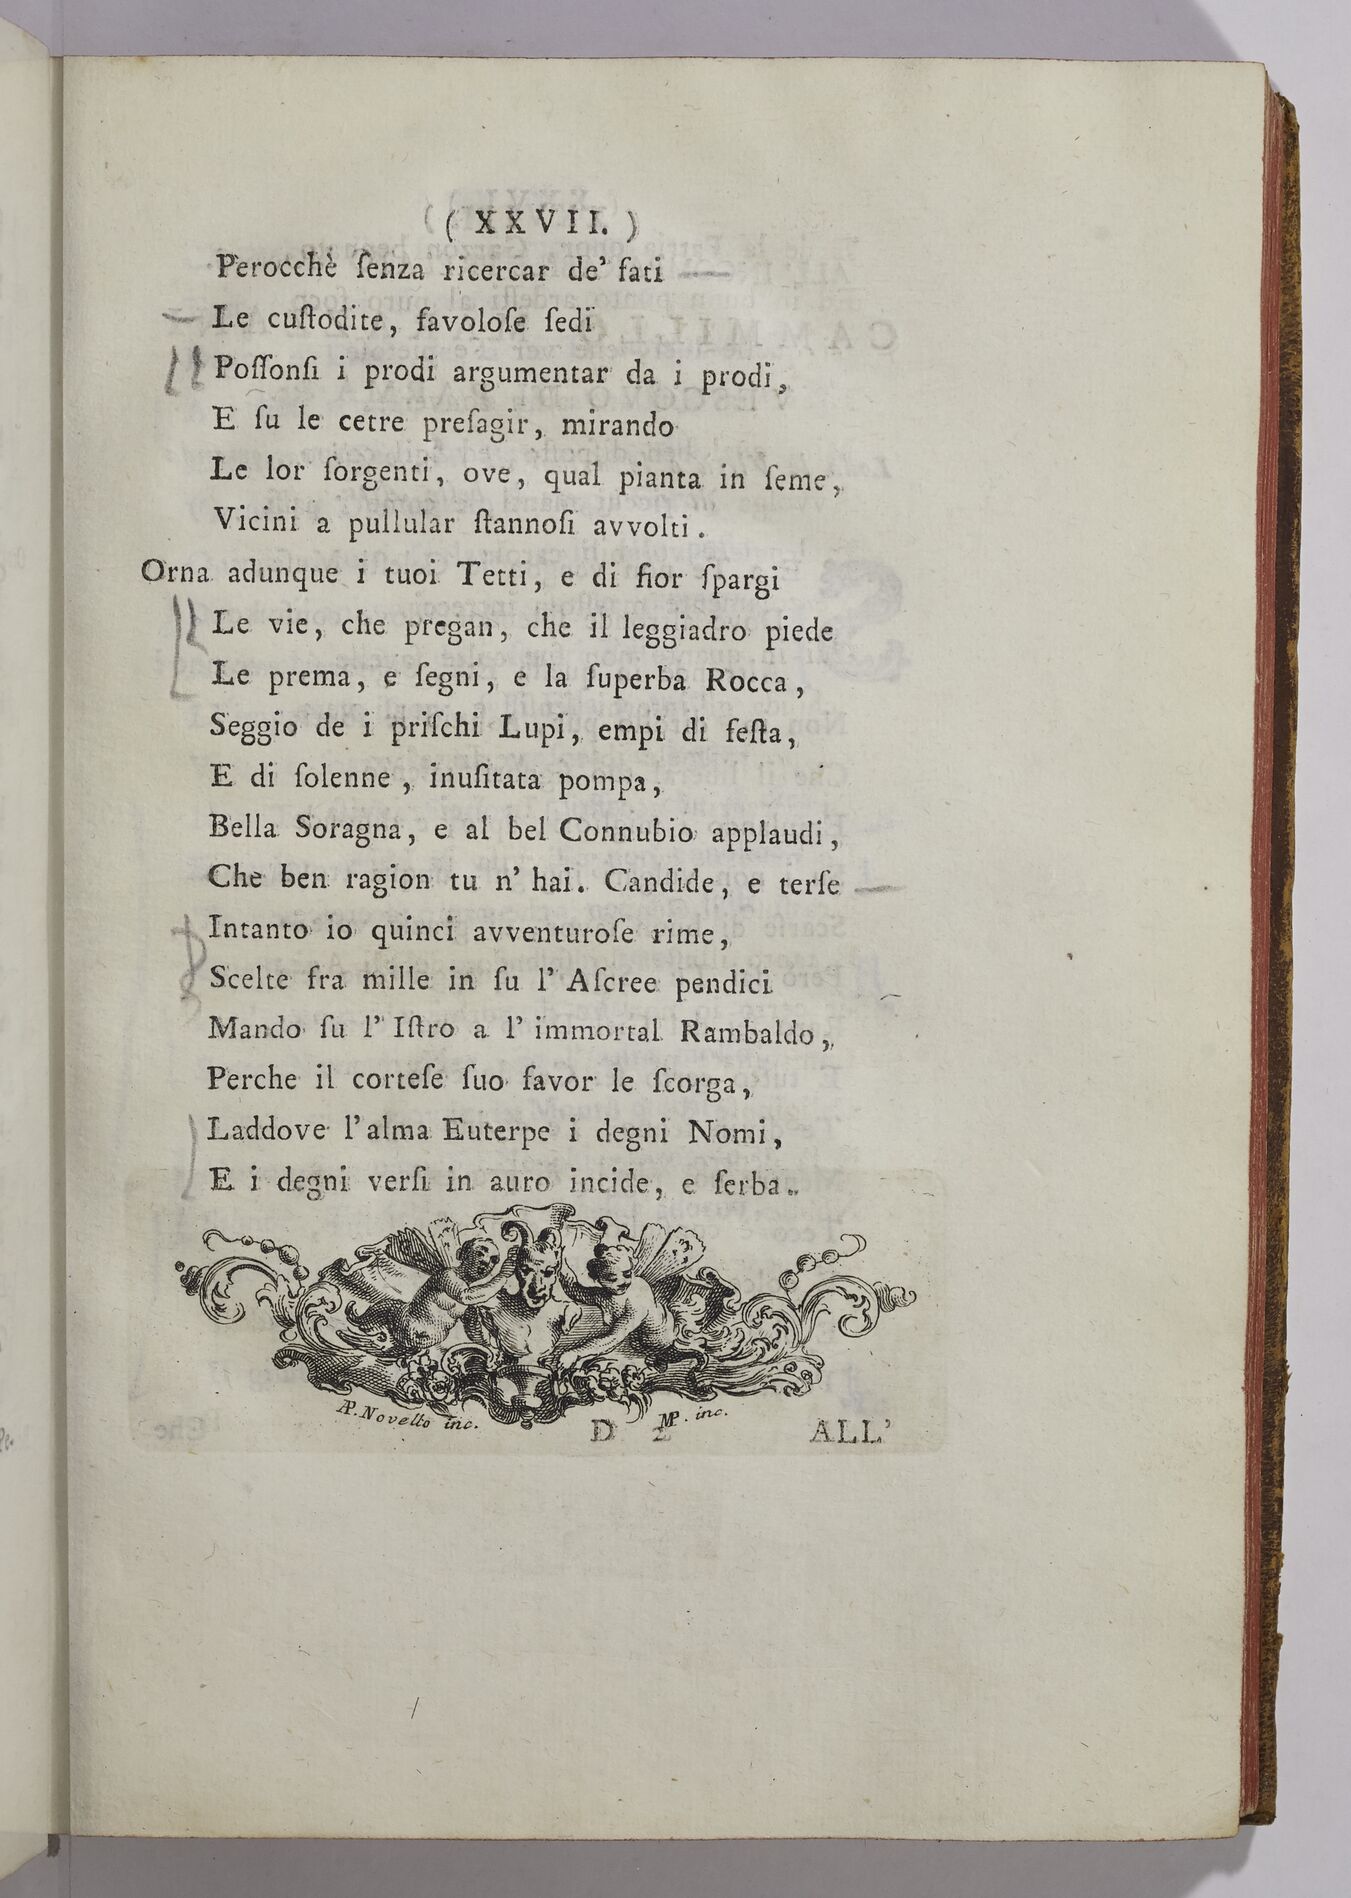 ( XXVII. )
Perocchè ſenza ricercar de' fati
Le cuſtodite, favoloſe ſedi
Poſſonſi i prodi argumentar da i prodi,
E ſu le cetre preſagir, mirando
Le lor ſorgenti, ove, qual pianta in ſeme,
Vicini a pullular ſtannoſi avvolti.
Orna adunque i tuoi Tetti, e di fior ſpargi
Le vie, che pregan, che il leggiadro piede
Le prema, e ſegni, e la ſuperba Rocca,
Seggio de i priſchi Lupi, empi di feſta,
E di ſolenne, inuſitata pompa,
Bella Soragna, e al bel Connubio applaudi,
Che ben ragion tu n' hai. Candide, e terſe
Intanto io quinci avventuroſe rime,
Scelte fra mille in ſu l' Aſcree pendici
Mando ſu l' Iſtro a l' immortal Rambaldo,
Perche il corteſe ſuo favor le ſcorga,
Laddove l'alma Euterpe i degni Nomi,
E i degni verſi in auro incide, e ſerba.
AP. Novello inc. MP. inc.
D 2 ALL'